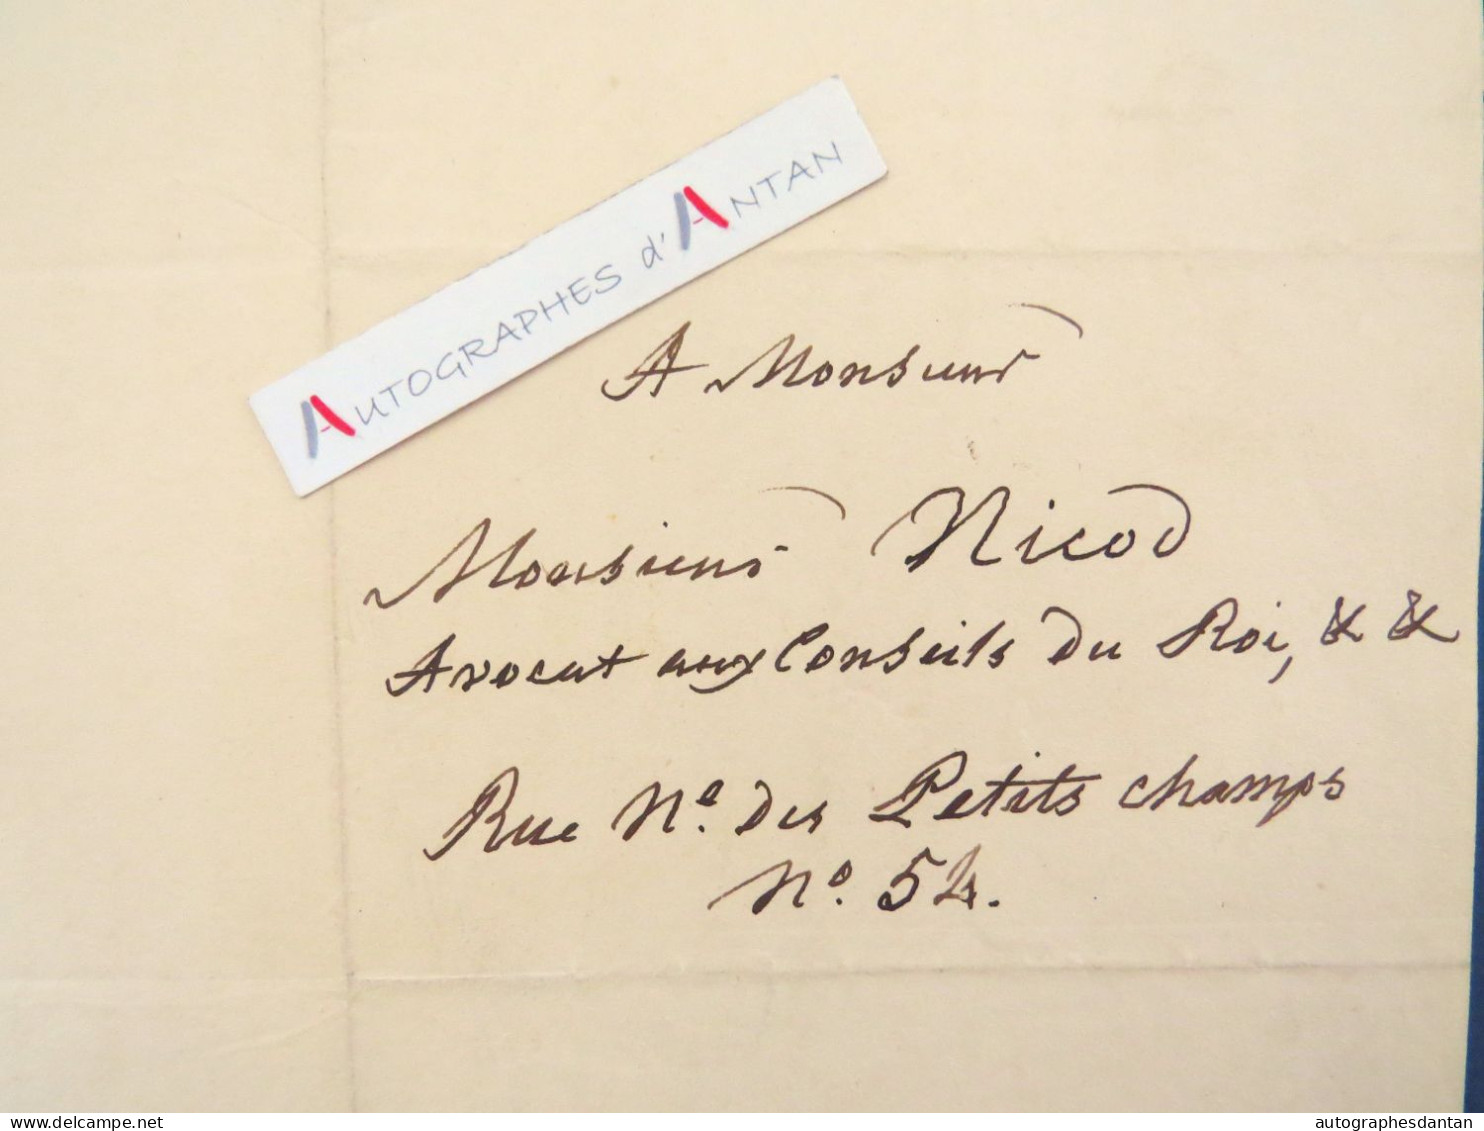 AUTOGRAPHES d'ANTAN
A Monsieur
Monsieur Nicod
Avocat aux Conseils du Roi, & &
Rue Ne. des Petits champs
No. 54.
www.delcampe.net
autographesdantan